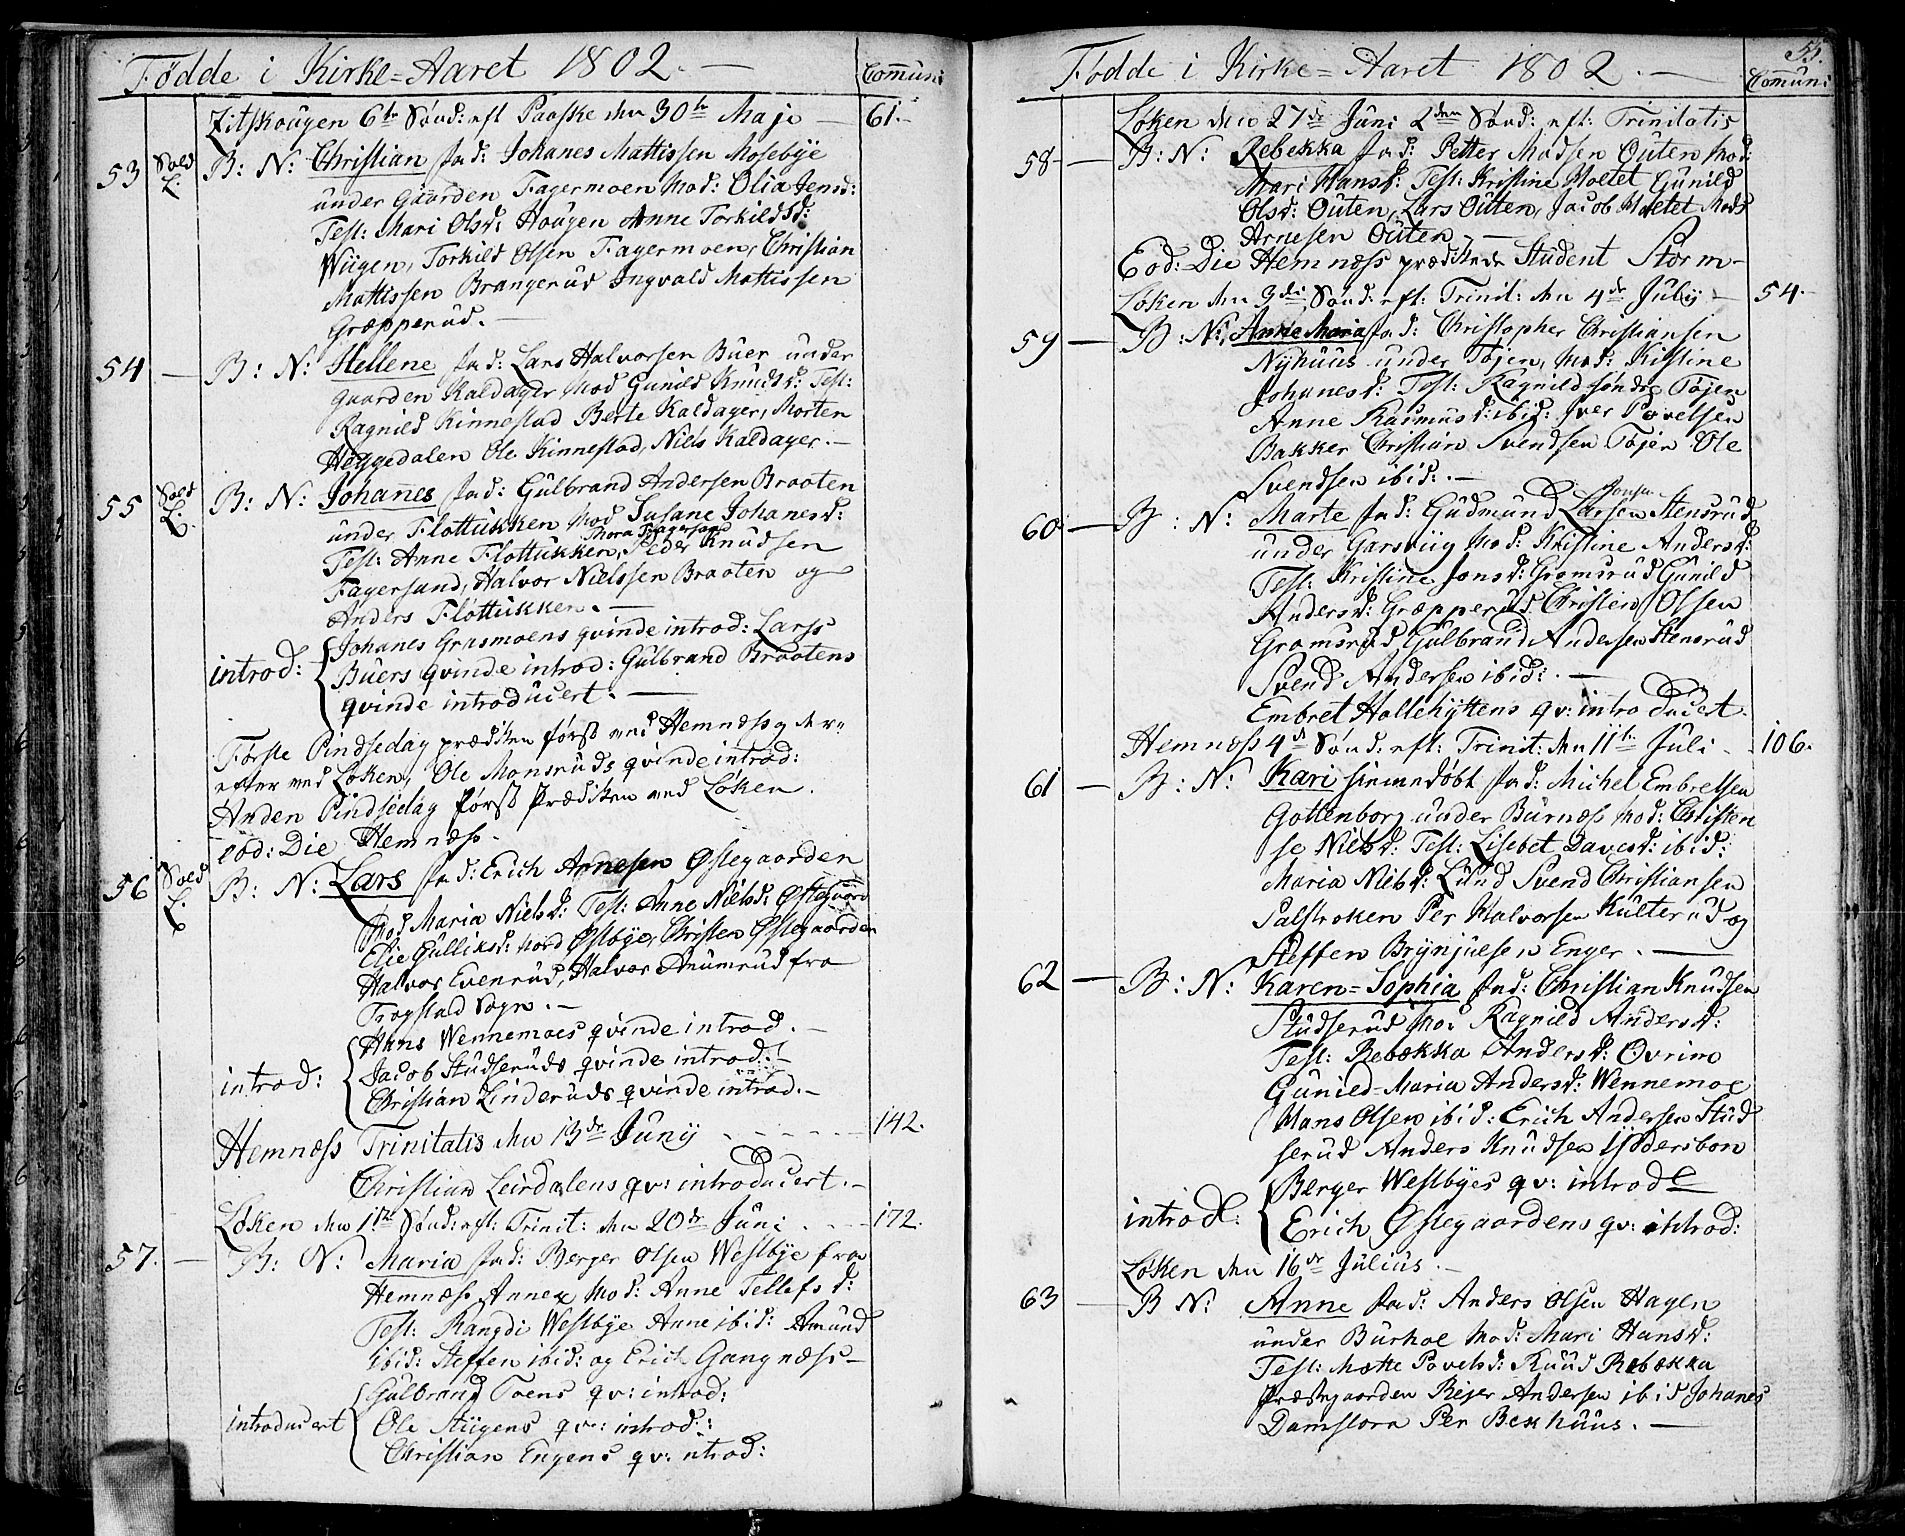 Fødde i Kirke=Aaret 1802. —
Comuni
Zitskougen 6te Sønd: eft Paaske den 30te Maji — 61.—
53 Sold L. B: N: Christian fad: Johanes Mattissen Mosebye
under Gaarden Fagermoen Mod: Olia Jensd:
Test: Mari Olsd: Hougen Anne Torkildsd:
Wiigen, Torkild Olsen Fagermoen, Christian
Mattissen Brangerud Ingvald Mattissen
Græpperud. —
54 — B: N: Hellene fad: Lars Halvorsen Buer under
gaarden Kaldager Mod Gunild Knudsd: Test:
Ragnild Kinnestad Berte Kaldager, Morten
Heggedalen Ole Kinnestad, Niels Kaldager. —
55 Sold L. B: N: Johannes fad: Gulbrand Andersen Braaten
under Flottukken Mod Susane Johanesd:
Thora Fagersand
Test: Anne Flottukken, Peder Knudsen
Fagersund, Halvor Nielssen Braaten og
Anders Flottukken. —
Johanes Grasmoens qvinde introd: Larss
introd: Buers qvinde introd: Gulbrand Braatens
qvinde introducert. —
Første Pindsedag prædiken først ved Hemness og der=
efter ved Løken, Ole Monsruds qvinde introd:
Anden Pindsedag først Prædiken ved Løken.
eod: Die Hemness.
56 Sold L. B: N: Lars fad: Erich Arnesen Østegaarden
Mod Maria Nielsd: Test: Anne Nielsd: Østegaard
Elie Gulliksd: Nord Østbye, Christen Østegaarden
Halvor Evenrud, Halvor Anumrud fra
Trogstad Sogn. —
Hans Wennemoes qvinde introd. —
introd: Jacob Studseruds qvinde introd: —
Christian Linderuds qvinde introd. —
Hemness Trinitatis den 13de Junij — 142.
Christian Leirdalens qv: introducert. —
Løken den 1ste Sønd: eft: Trinit: den 20de Juni — 172.
57. — B: N: Maria fad: Berger Olsen Westbye fra
Hemness Annex Mod: Anne Tellefsd:
Test: Rangdi Westbye Anne ibid: Amund
ibid: Steffen ibid: og Erich Gangness —
Gulbrand Toens qv: introd:
introducert Ole Stigens qv: introd:
Christian Engens qv: introd:
55.
Fødde i Kirke=Aaret 1802. —
Comuni
Løken den 27de Juni 2den Sønd: eft: Trinitatis
58 — B: N: Rebekka fad: Petter Madsen Outen Mod:
Mari Hansd: Test: Kristine Moetet Gunild
Olsd: Outen, Lars Outen, Jacob Moetet Mads
Arnesen Outen. —
Eod: Die Hemness prædikede Student Storm —
Løken den 3die Sønd: eft: Trinit: den 4de July — 54.—
59 — B: N: Anne Maria fad: Christopher Christiansen
Nyhuus under Tøjen, Mod: Kistine
Johanesd: Test: Ragnild søndre Tøjen
Anne Rasmusd: ibid: Iver Povelsen
Bakker Christian Svendsen Tøjen Ole
Svendsen ibid: —
Jonsen
60 — B: N: Marte fad: Gudmund Larsen Stensrud
under Garsviig Mod: Kristine Andersd:
Test: Kristine Jonsd: Gromsrud Gunild
Andersd: Græpperud Christen Olsen
Gromsrud Gulbrand Andersen Stensrud
Svend Andersen ibid: —
Embret Hallehyttens qv: introducert.
Hemness 4de Sønd: eft: Trinit: den 11te Juli — 106.
61 — B: N: Kari hiemedøbt fad: Michel Embretsen
Gottenborg under Burness Mod: Christen
se Nielsd: Test: Lisebet Davesd: ibid:
Maria Nielsd: Lund Svend Christiansen
Salstroken Per Halvorsen Kulterud og
Steffen Brynjuelsen Enger. —
62 — B: N: Karen=Sophia fad: Christian Knudsen
Studserud Mod Ragnild Andersd:
Test: Rebekka Andersd: Ovrim
Gunied=Maria Andersd: Wennemoe
Hans Olsen ibid: Erich Andersen Stud
serud Anders Knudsen
Berger Westbyes qv: introd
introd: Erich Østegaardens qv: introd:
Løken den 16de Julius. —
63 — B N: Anne fad: Anders Olsen Hagen
under Burhoe Mod: Mari Hansd:
Test: Mette Povelsd: Ruud Rebekka
Præstegaarden Rejer Andersen ibid Johanes
Damslora Per Bekhuus. —